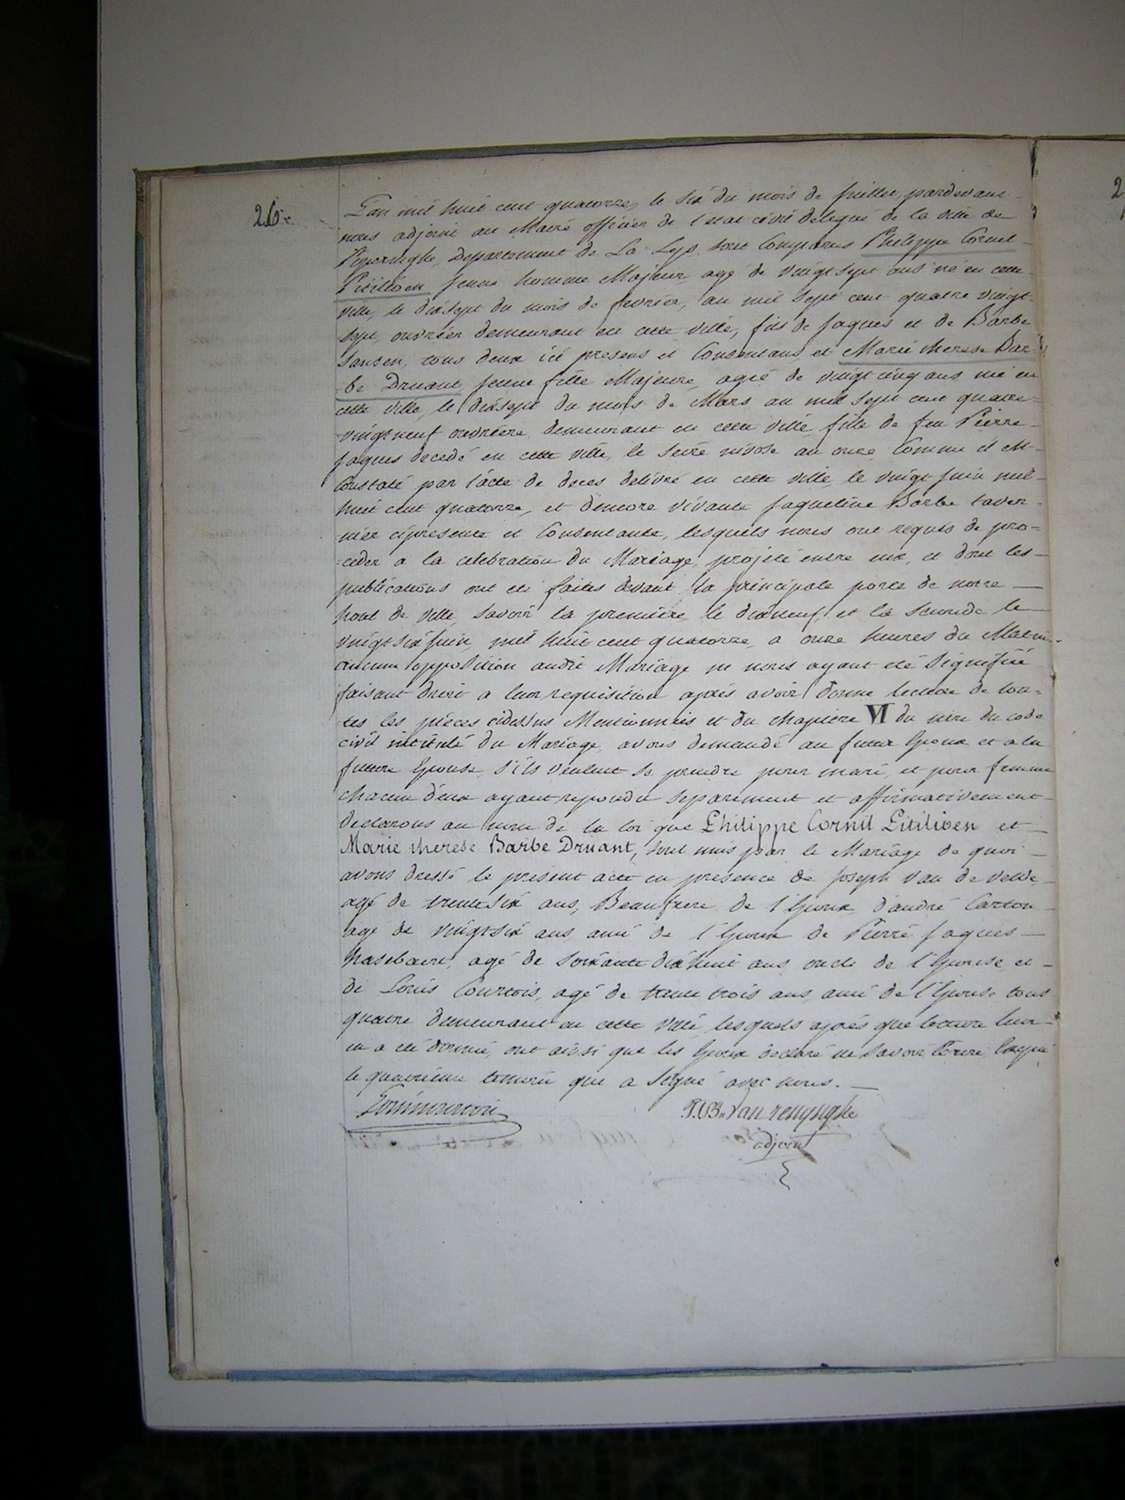 26e
L'an mil huit cent quatorze, le six du mois de Juillet, pardevant
nous adjoint au Maire officier de l'etat civil delegué de la ville de
Poperinghe, Departement de La Lys, sont Comparus Philippe Cornil
Pitilioen Jeune homme Majeur, agé de vingt sept ans né en cette
ville, le dixsept du mois de fevrier, an mil sept cent quatre vingt
sept, ouvrier demeurant en cette ville, fils de Jaques et de Barbe
Jansen, tous deux ici presens et Consentans et Marie therese Bar-
be Druant Jeune fille Majeure, agée de vingt cinq ans née en
cette ville, le dixsept du mois de Mars an mil sept cent quatre
vingtneuf ouvriere, demeurant en cette ville, fille de feu Pierre
Jaques decedé en cette ville, le seize nivose an onze Comme il est
Constaté par l'acte de deces delivré en cette ville le vingt Juin mil
huit cent quatorze, et d'encore vivante Jaqueline Barbe taver-
nier cipresente et Consentante, lesquels nous ont requis de pro-
ceder a la celebration du Mariage projeté entre eux, et dont les
publications ont été faites devant la principale porte de notre
hotel de ville, Savoir la premiere le dixneuf et la seconde le
vingtsix Juin mil huit cent quatorze, a onze heures du Matin
aucune opposition audit Mariage ne nous ayant été Signifiée
faisant droit a leur requisition aprés avoir donné lecture de tou-
tes les pièces cidessus Mentionnées et du chapitre VI du titre du code
civil intitulé du Mariage, avons demandé au futur Epoux et a la
future Epouse, s'ils veulent se prendre pour mari, et pour femme
chacun d'eux ayant repondu separement et affirmativement
declarons au nom de la loi que Philippe Cornil Pitilioen et
Marie therese Barbe Druant, sont unis par le Mariage de quoi
avons dressé le present acte en presence de Joseph Van de velde
agé de trentesix ans, Beaufrere de l'Epoux d'andré Carton
agé de vingtsix ans ami de l'Epoux de Pierre Jaques
hasebaert, agé de soixante dixhuit ans oncle de l'Epouse, et
de Louis Courtois, agé de trente trois ans, ami de l'Epouse tous
quatre demeurant en cette ville, lesquels aprés que lecture leur
en a été donnée, ont ainsi que les Epoux declaré ne savoir Ecrire Excepté
le quatrieme temoin que a Signé avec nous.
van renynghe
adjoint